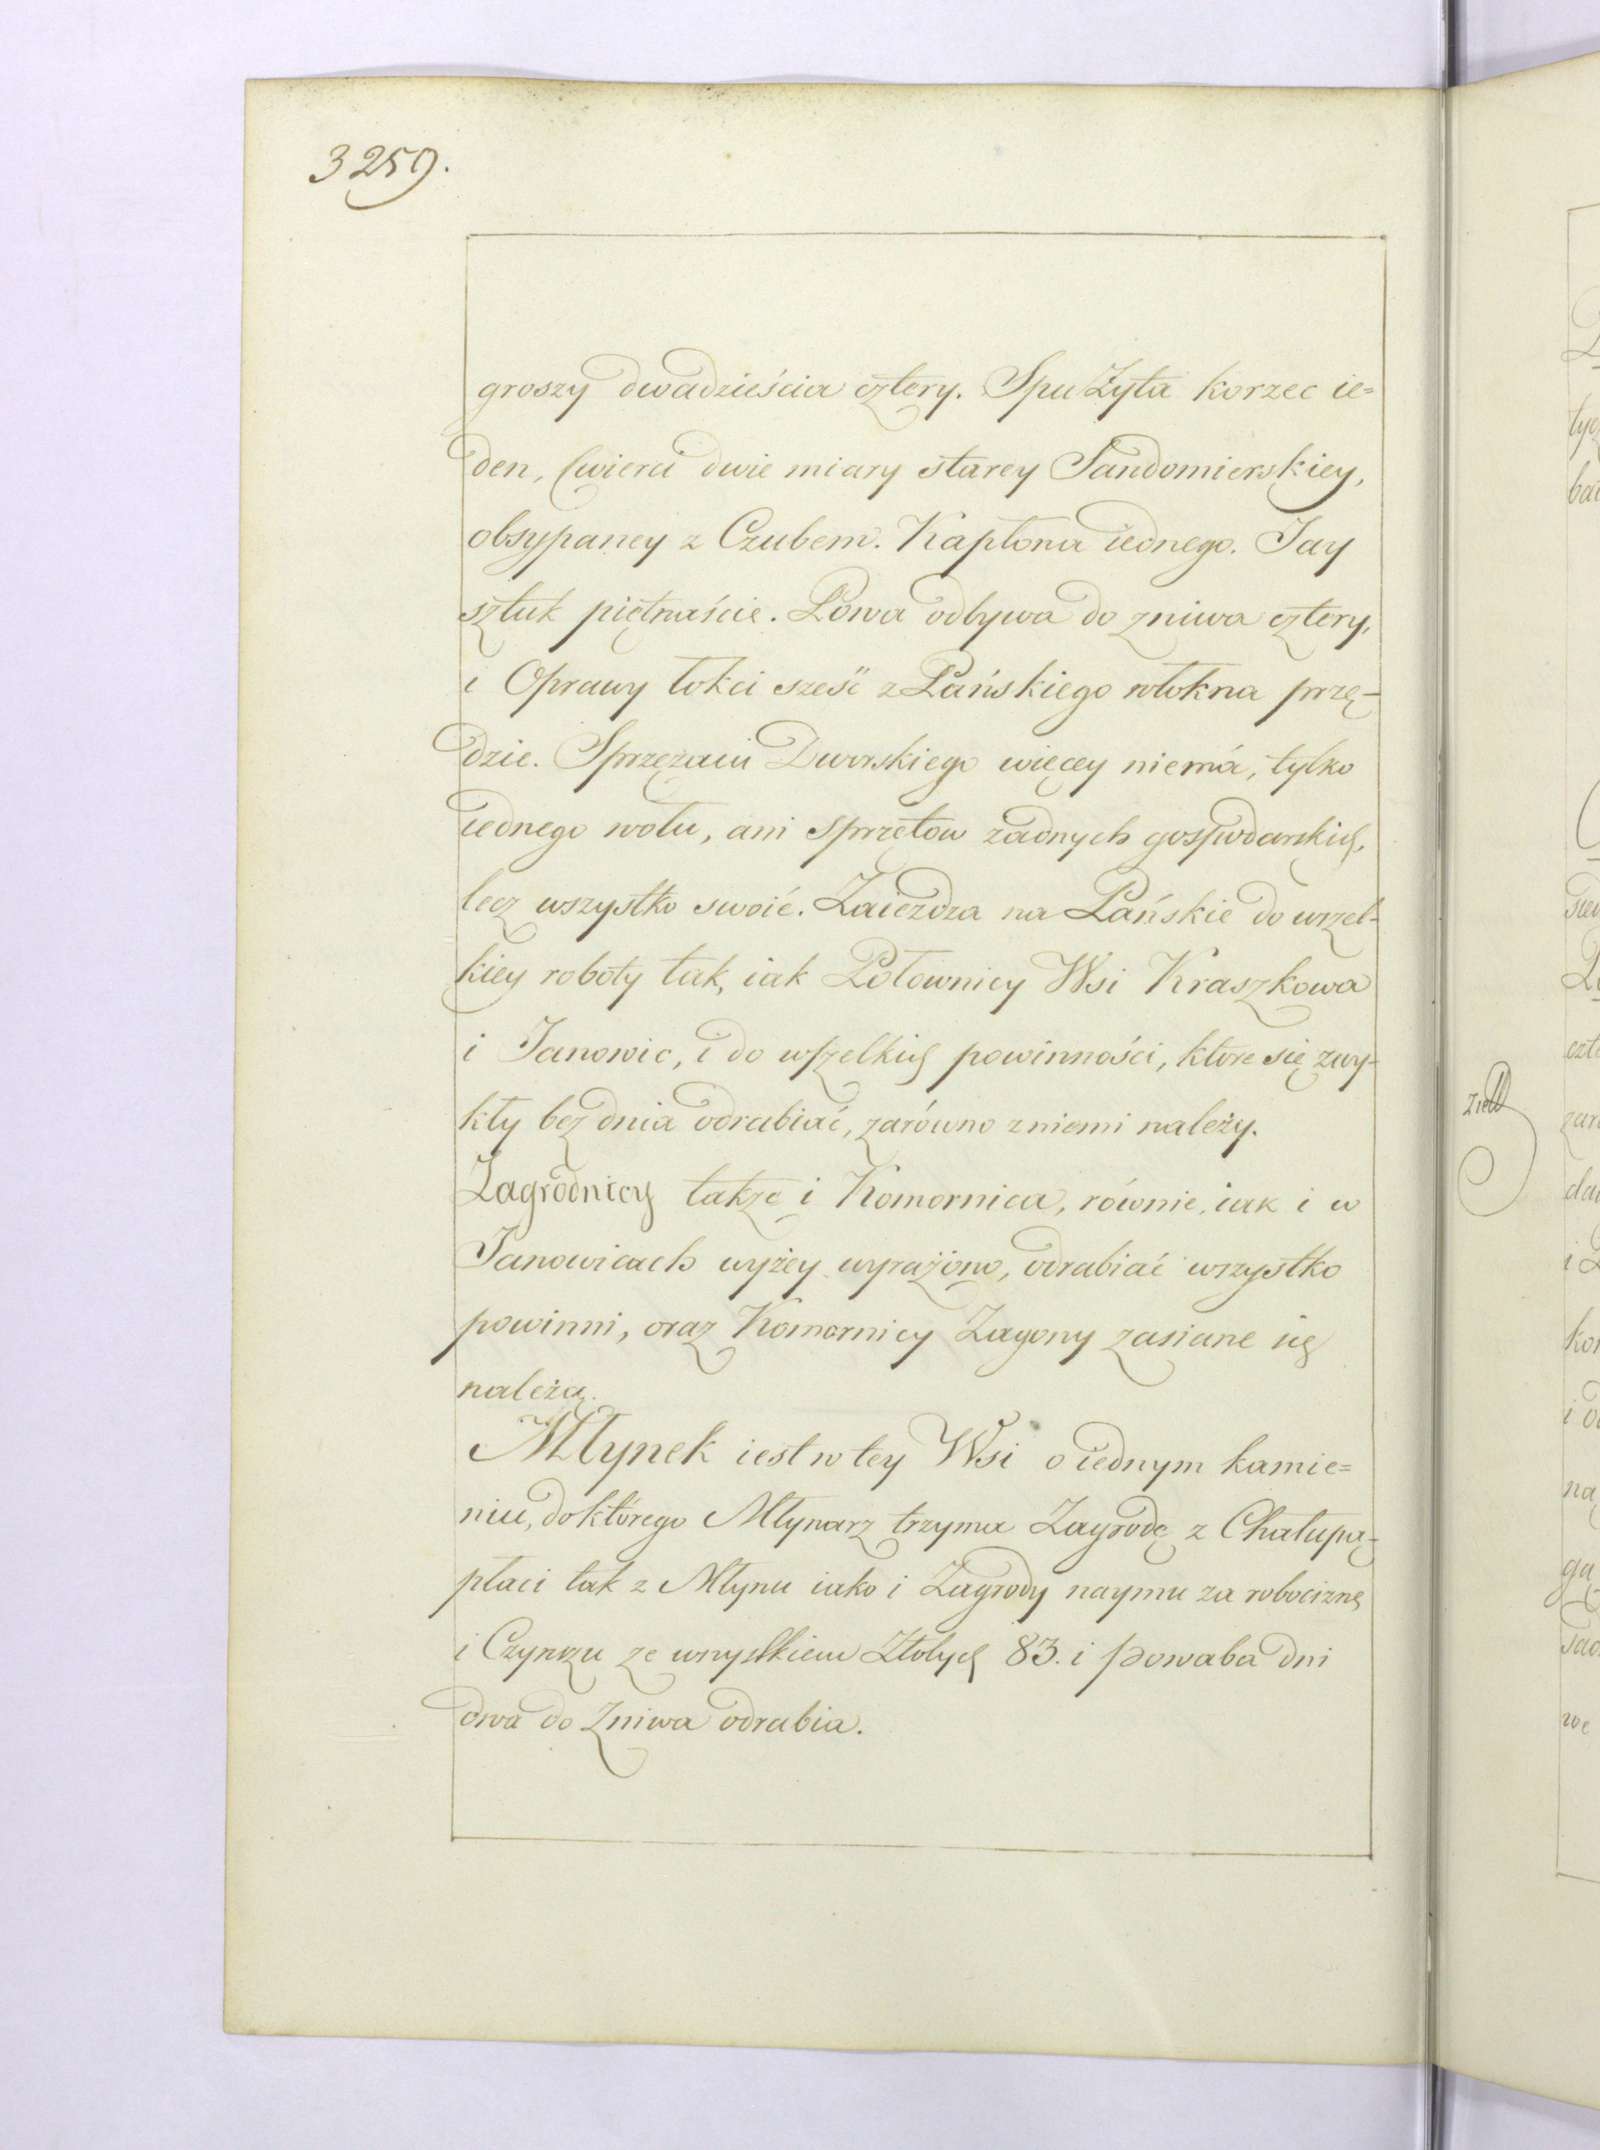 3259.
groszy dwadzieścia cztery. Spu Zyta korzec ie=
den, Cwierci dwie miary starey Sandomierskiey,
obsypaney z Czubem. Kapłona iednego. Jay
sztuk piętnaście. Powa odbywa do zniwa cztery,
i Oprawy łokci sześć z Pańskiego włokna przę-
dzie. Sprzężaiu Dworskiego więcey niemá, tylko
iednego wołu, ani sprzętow żadnych gospodarskich,
lecz wszystko swoié. Zaiezdza na Pańskie do wszel-
kiey roboty tak, iak Połownicy Wsi Kraszkowa
i Janowic, i do wszelkich powinności, które się zwy-
kły bez dnia odrabiać, zarówno z niemi należy.
Zagrodnicy także i Komornica, równie, iak i w
Janowicach wyżey wyrażono, odrabiać wszystko
powinni, oraz Komornicy Zagony zasiane ich
należą.
Młynek iest w tey Wsi o iednym kamie=
niu, do którego Młynarz trzyma Zagrodę z Chałupą-
płaci tak z Młynu iako i Zagrody naymu za robociznę
i Czynszu ze wszystkiem Złotych 83. i powaba dni
dwa do Zniwa odrabia.